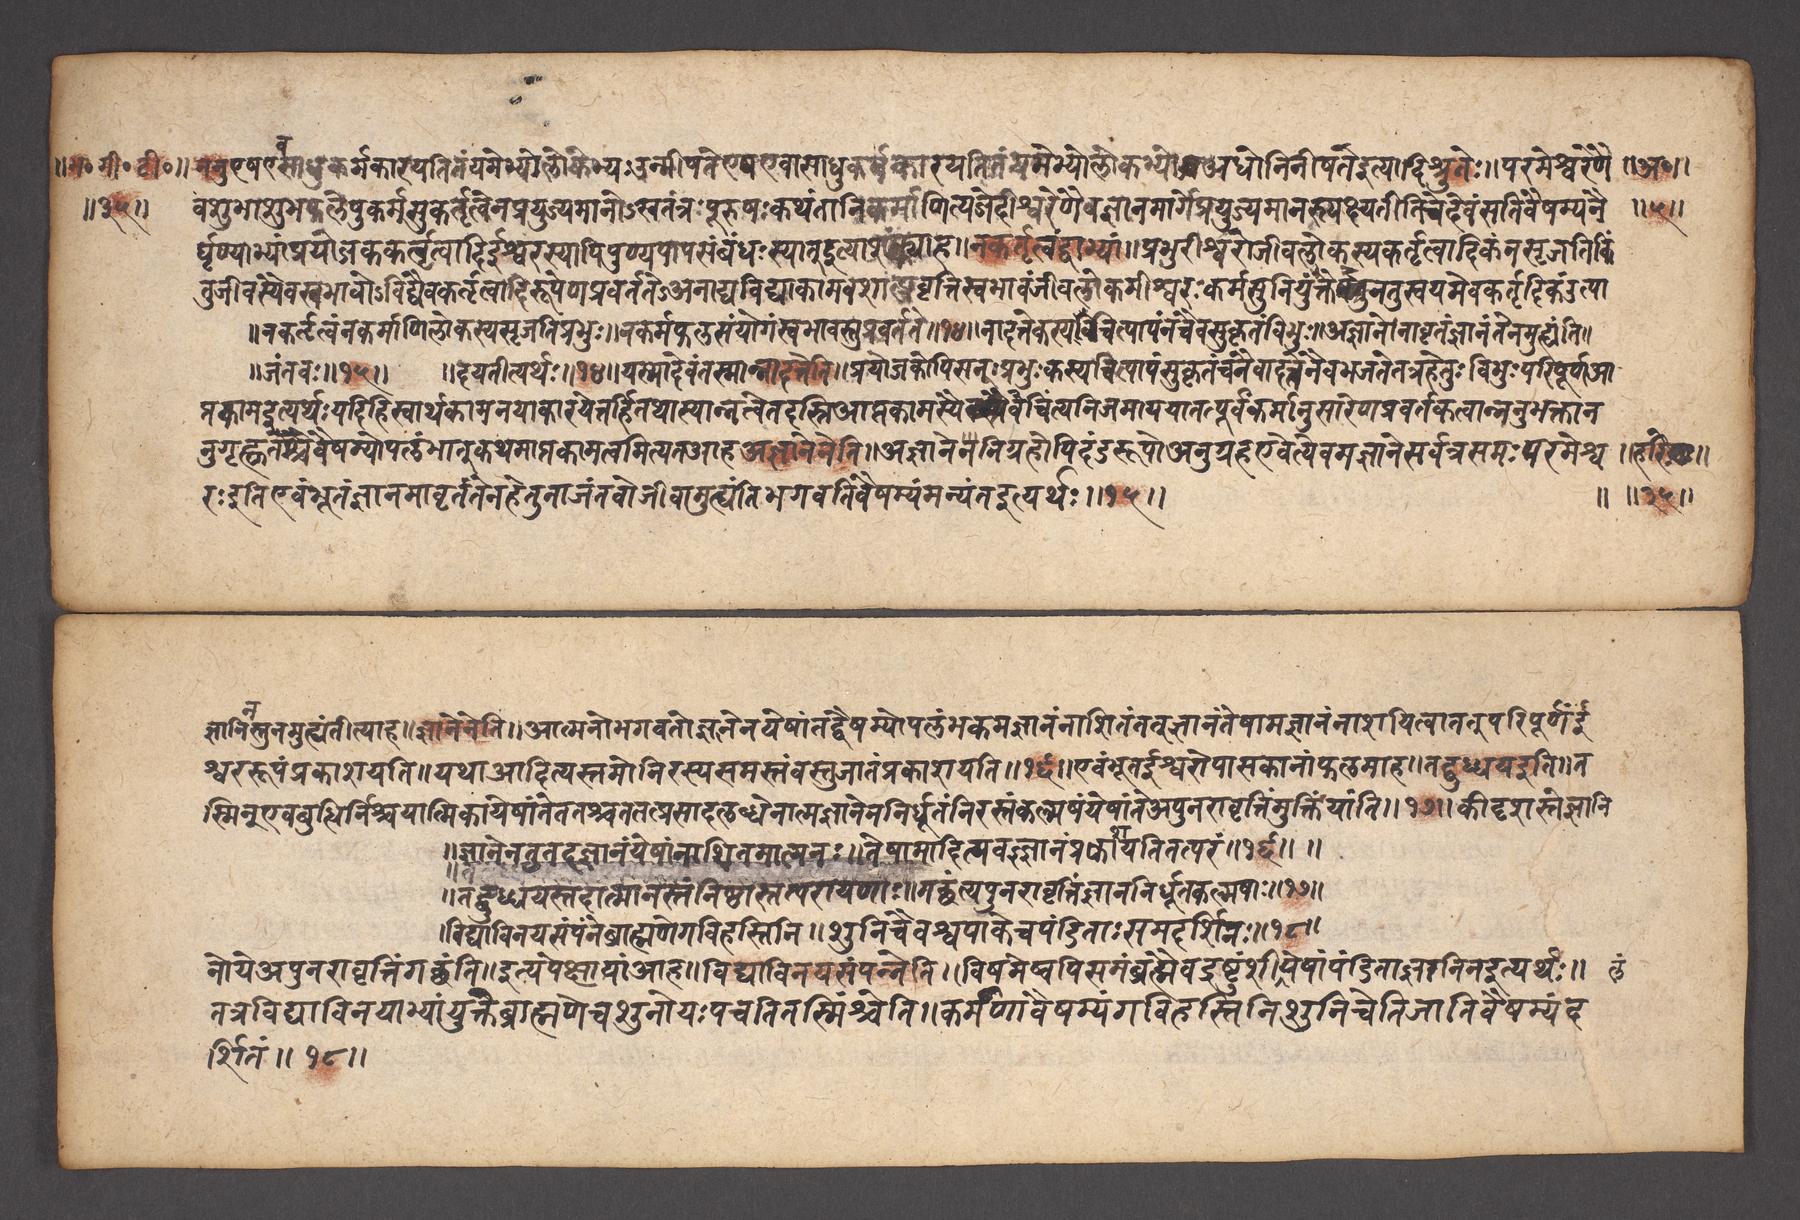 ॥भ॰ गी॰ टी॰॥ ननुएषएवसाधुकर्मकारयतितंयमेभ्योलोकेभ्यःउन्मीषतेएषएवासाधुकर्मकारयतितंयमेभ्योलोकेभ्योअधोनिनीषतेइत्यादिश्रुतेः॥परमेश्वरेणै ॥अ॰॥
॥३५॥ वशुभाशुभफलेषुकर्मसुकर्तृत्वेनप्रयुज्यमानोऽस्वतंत्रःपुरुषःकथंतानिकर्माणित्यजेदीश्वरेणैवज्ञानमार्गेप्रयुज्यमानस्त्यक्ष्यतीतिचेदेवंसतिवैषम्यनै ॥५॥
र्घृण्याभ्यांप्रयोजककर्तृत्वादिर्इश्वरस्यापिपुण्यपापसंबंधःस्यात्इत्याशंक्याह॥नकर्तृत्वंद्वाभ्यां॥प्रभुरीश्वरोजीवलोकस्यकर्तृत्वादिकंनसृजतिकिं
तुजीवस्यैवस्वभावोऽविद्यैवकर्तृत्वादिरूपेणप्रवर्ततेऽअनाद्यविद्याकामवशात्प्रवृत्तिस्वभावंजीवलोकमीश्वरःकर्मसुनियुंक्तेनतुस्वयमेवकर्तृदिकंउत्पा
॥नकर्तृत्वंनकर्माणिलोकस्यसृजतिप्रभुः॥नकर्मफलसंयोगंस्वभावस्तुप्रवर्तते॥१४॥नादत्तेकस्यचित्पापंनचैवसुकृतंविभुः॥अज्ञानेनावृतंज्ञानंतेनमुह्यंति॥
॥जंतवः॥१५॥ ॥दयतीत्यर्थः॥१४॥यस्मादेवंतस्मान्नादत्तेति॥प्रयोजकोपिसन्ःप्रभुःकस्यचित्पापंसुकृतंचनैवादत्तेनैवभजतेतत्रहेतुःविभुःपरिपूर्णआ
प्तकामइत्यर्थःयदिहिस्वार्थकामनयाकारयेत्तर्हितथास्यान्नत्वेतदस्तिआप्तकामस्यैवैचिंत्यनिजमाययातत्पूर्वकर्मानुसारेणप्रवर्तकत्वान्ननुभक्तान
नुगृह्णतश्चवैषम्योपलंभात्कथमाप्तकामत्वमित्यतआहअज्ञानेनेति॥अज्ञानेननिग्रहोपिदंडरूपोअनुग्रहएवेत्येवमज्ञानेसर्वत्रसमःपरमेश्व ॥हरिः॥
रःइतिएवंभूतंज्ञानमावृतंतेनहेतुनाजंतवोजीवामुह्यंतिभगवतिवैषम्यंमन्यंतइत्यर्थः॥१५॥ ॥ ॥३५॥
ज्ञानिनस्तुनमुह्यंतीत्याह॥ज्ञानेनेति॥आत्मनोभगवतोज्ञानेनयेषांतद्वैषम्योपलंभकमज्ञानंनाशितंतत्ज्ञानंतेषामज्ञानंनाशयित्वातत्परिपूर्णंर्इ
श्वररूपंप्रकाशयति॥यथाआदित्यस्तमोनिरस्यसमस्तंवस्तुजातंप्रकाशयति॥१६॥एवंभूतर्इश्वरोपासकानांफलमाह॥तद्बुध्ययइति॥त
स्मिन्एवबुद्धिर्निश्चयात्मिकायेषांतेततश्चतत्प्रसादलब्धेनात्मज्ञानेननिर्धूतंनिरस्तंकल्मषंयेषांतेअपुनरावृत्तिंमुक्तिंयांति॥१७॥कीदृशास्तेज्ञानि
॥ज्ञानेनतुतदज्ञानंयेषांनाशितमात्मनः॥तेषामादित्यवज्ज्ञानंप्रकाशयतितत्परं॥१६॥ ॥
॥तद्बुध्ययस्तदात्मानस्तंनिष्ठास्तत्परायणाः॥गछंत्यपुनरावृत्तिंज्ञाननिर्धूतकल्मषाः॥१७॥
।विद्याविनयसंपंनेब्राह्मणेगविहस्तिनि॥शुनिचैवश्वपाकेचपंडिताःसमदर्शिनः॥१८॥
नोयेअपुनरावृत्तिंगछंति॥इत्यपेक्षायांआह॥विद्याविनयसंपन्नेति॥विषमेष्वपिसमंब्रह्मैवद्रष्टुंशीलंयेषांपंडिताज्ञानिनइत्यर्थः॥ लं
तत्रविद्याविनयाभ्यांयुक्तेब्राह्मणेचशुनोयःपचतितस्मिंश्चेति॥कर्मणांवैषम्यंगविहस्तिनिशुनिचेतिजातिवैषम्यंद
र्शितं॥१८॥